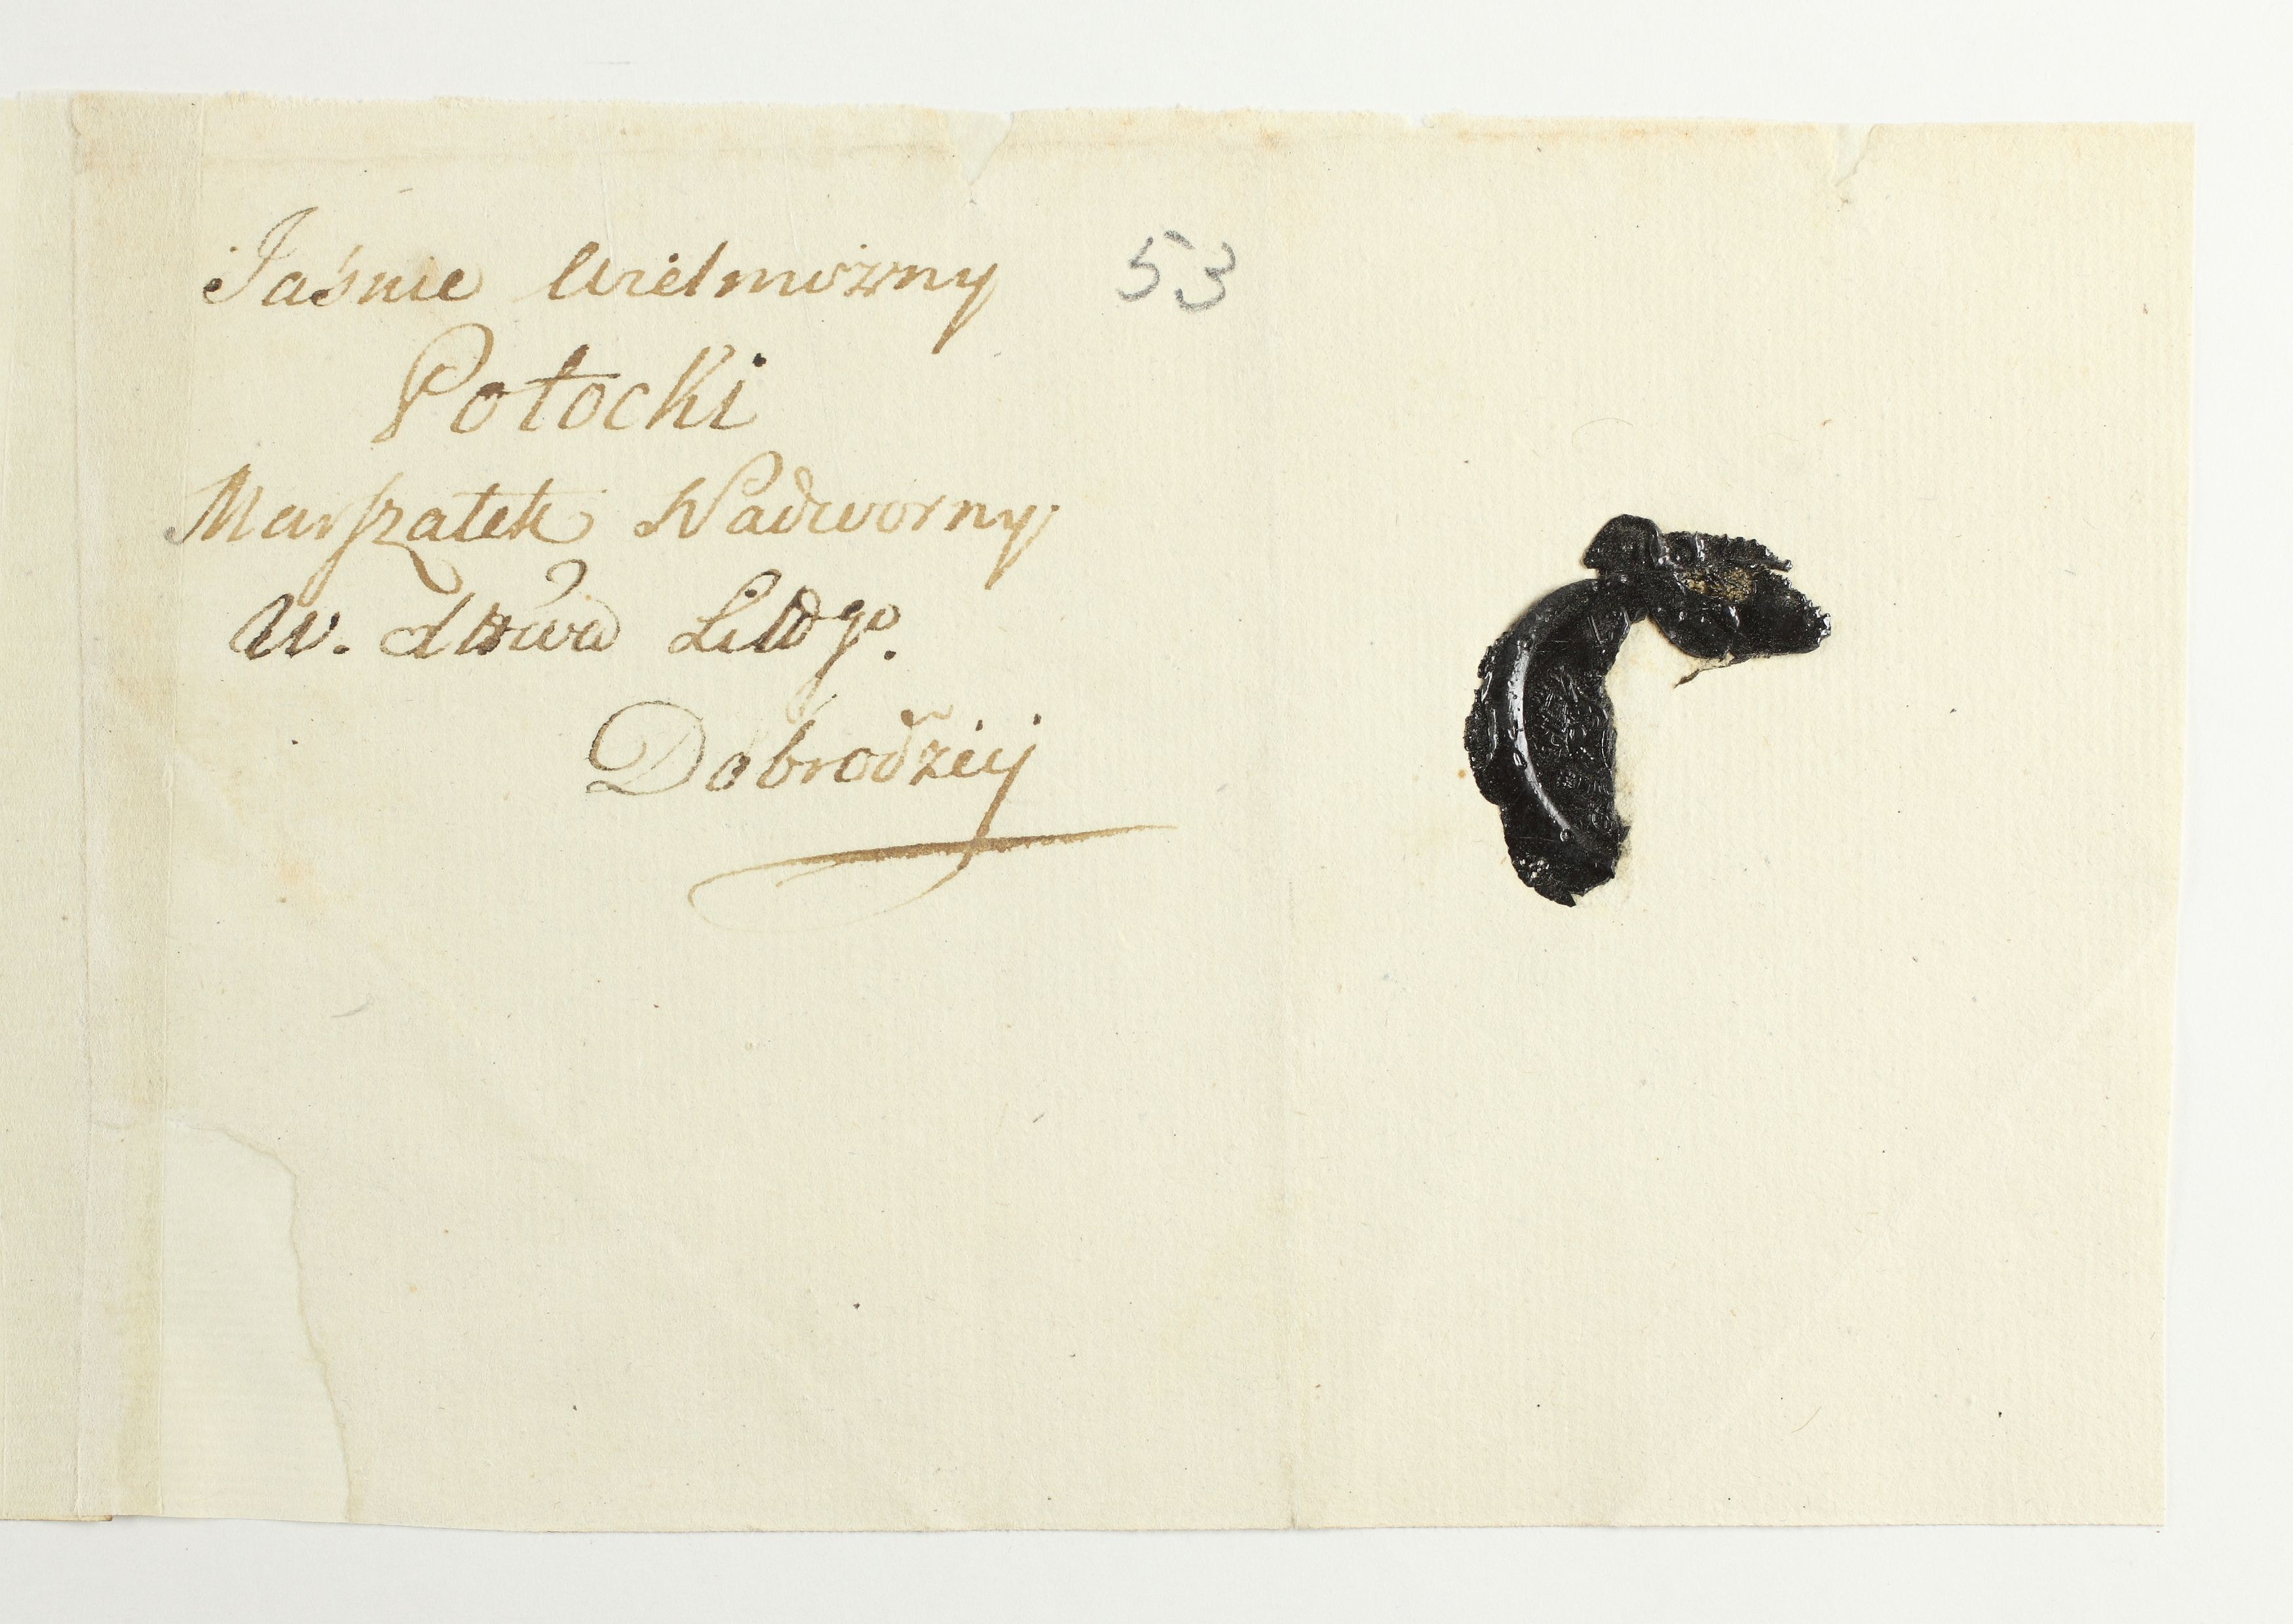 Jaśnie Wielmożny
53
Potocki
Marszałek Nadworny
W. Xtwa Littgo.
Dobrodziey